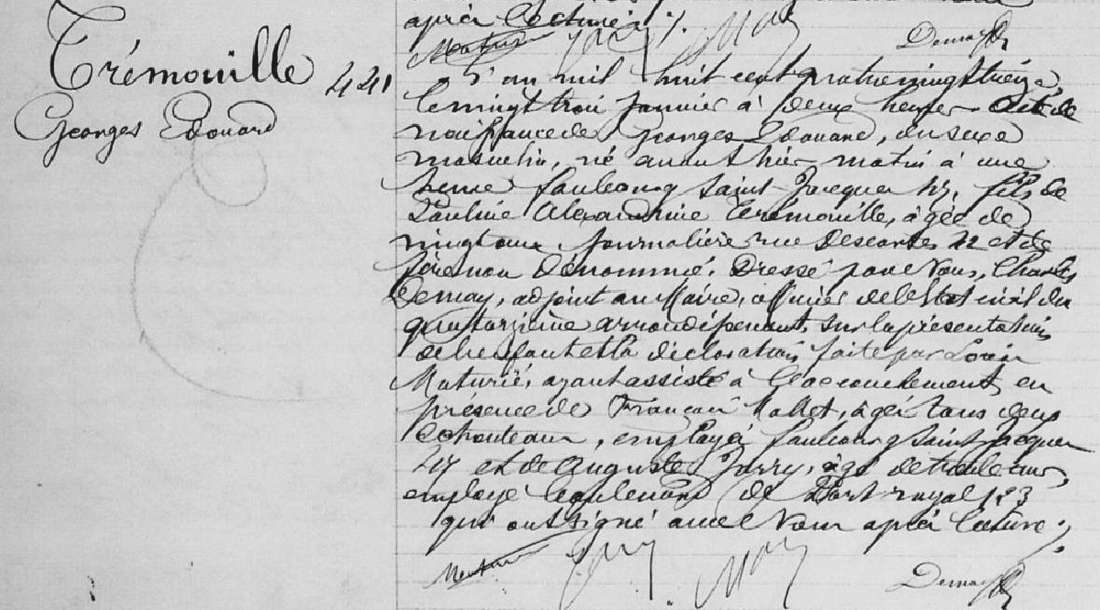 après lecture ./.
Demay
Trémouille
Georges Edouard
421
L'an mil huit cent quatrevingt treize,
le vingt trois janvier à deux heures. Acte de
naissance de Georges Edouard, du sexe
masculin, né avant hier matin à une
heure faubourg Saint-Jacques 47, fils de
Pauline Alexandrine Trémouille, âgée de
vingt ans, journalière rue Descartes 22 et de
père non dénommé. Dressé par Nous, Charles
Demay, adjoint au Maire, officier de l'état civil du
quatorzième arrondissement, sur la présentation
de l'enfant et la déclaration faite par Louise
Maturié, ayant assisté à l'accouchement, en
présence de François Mallet, âgé
employé faubourg Saint Jacques
47 et de Auguste Jarry, âgé de trente ans,
employé boulevard de Port royal 123
qui ont signé avec Nous après lecture ./.
Demay